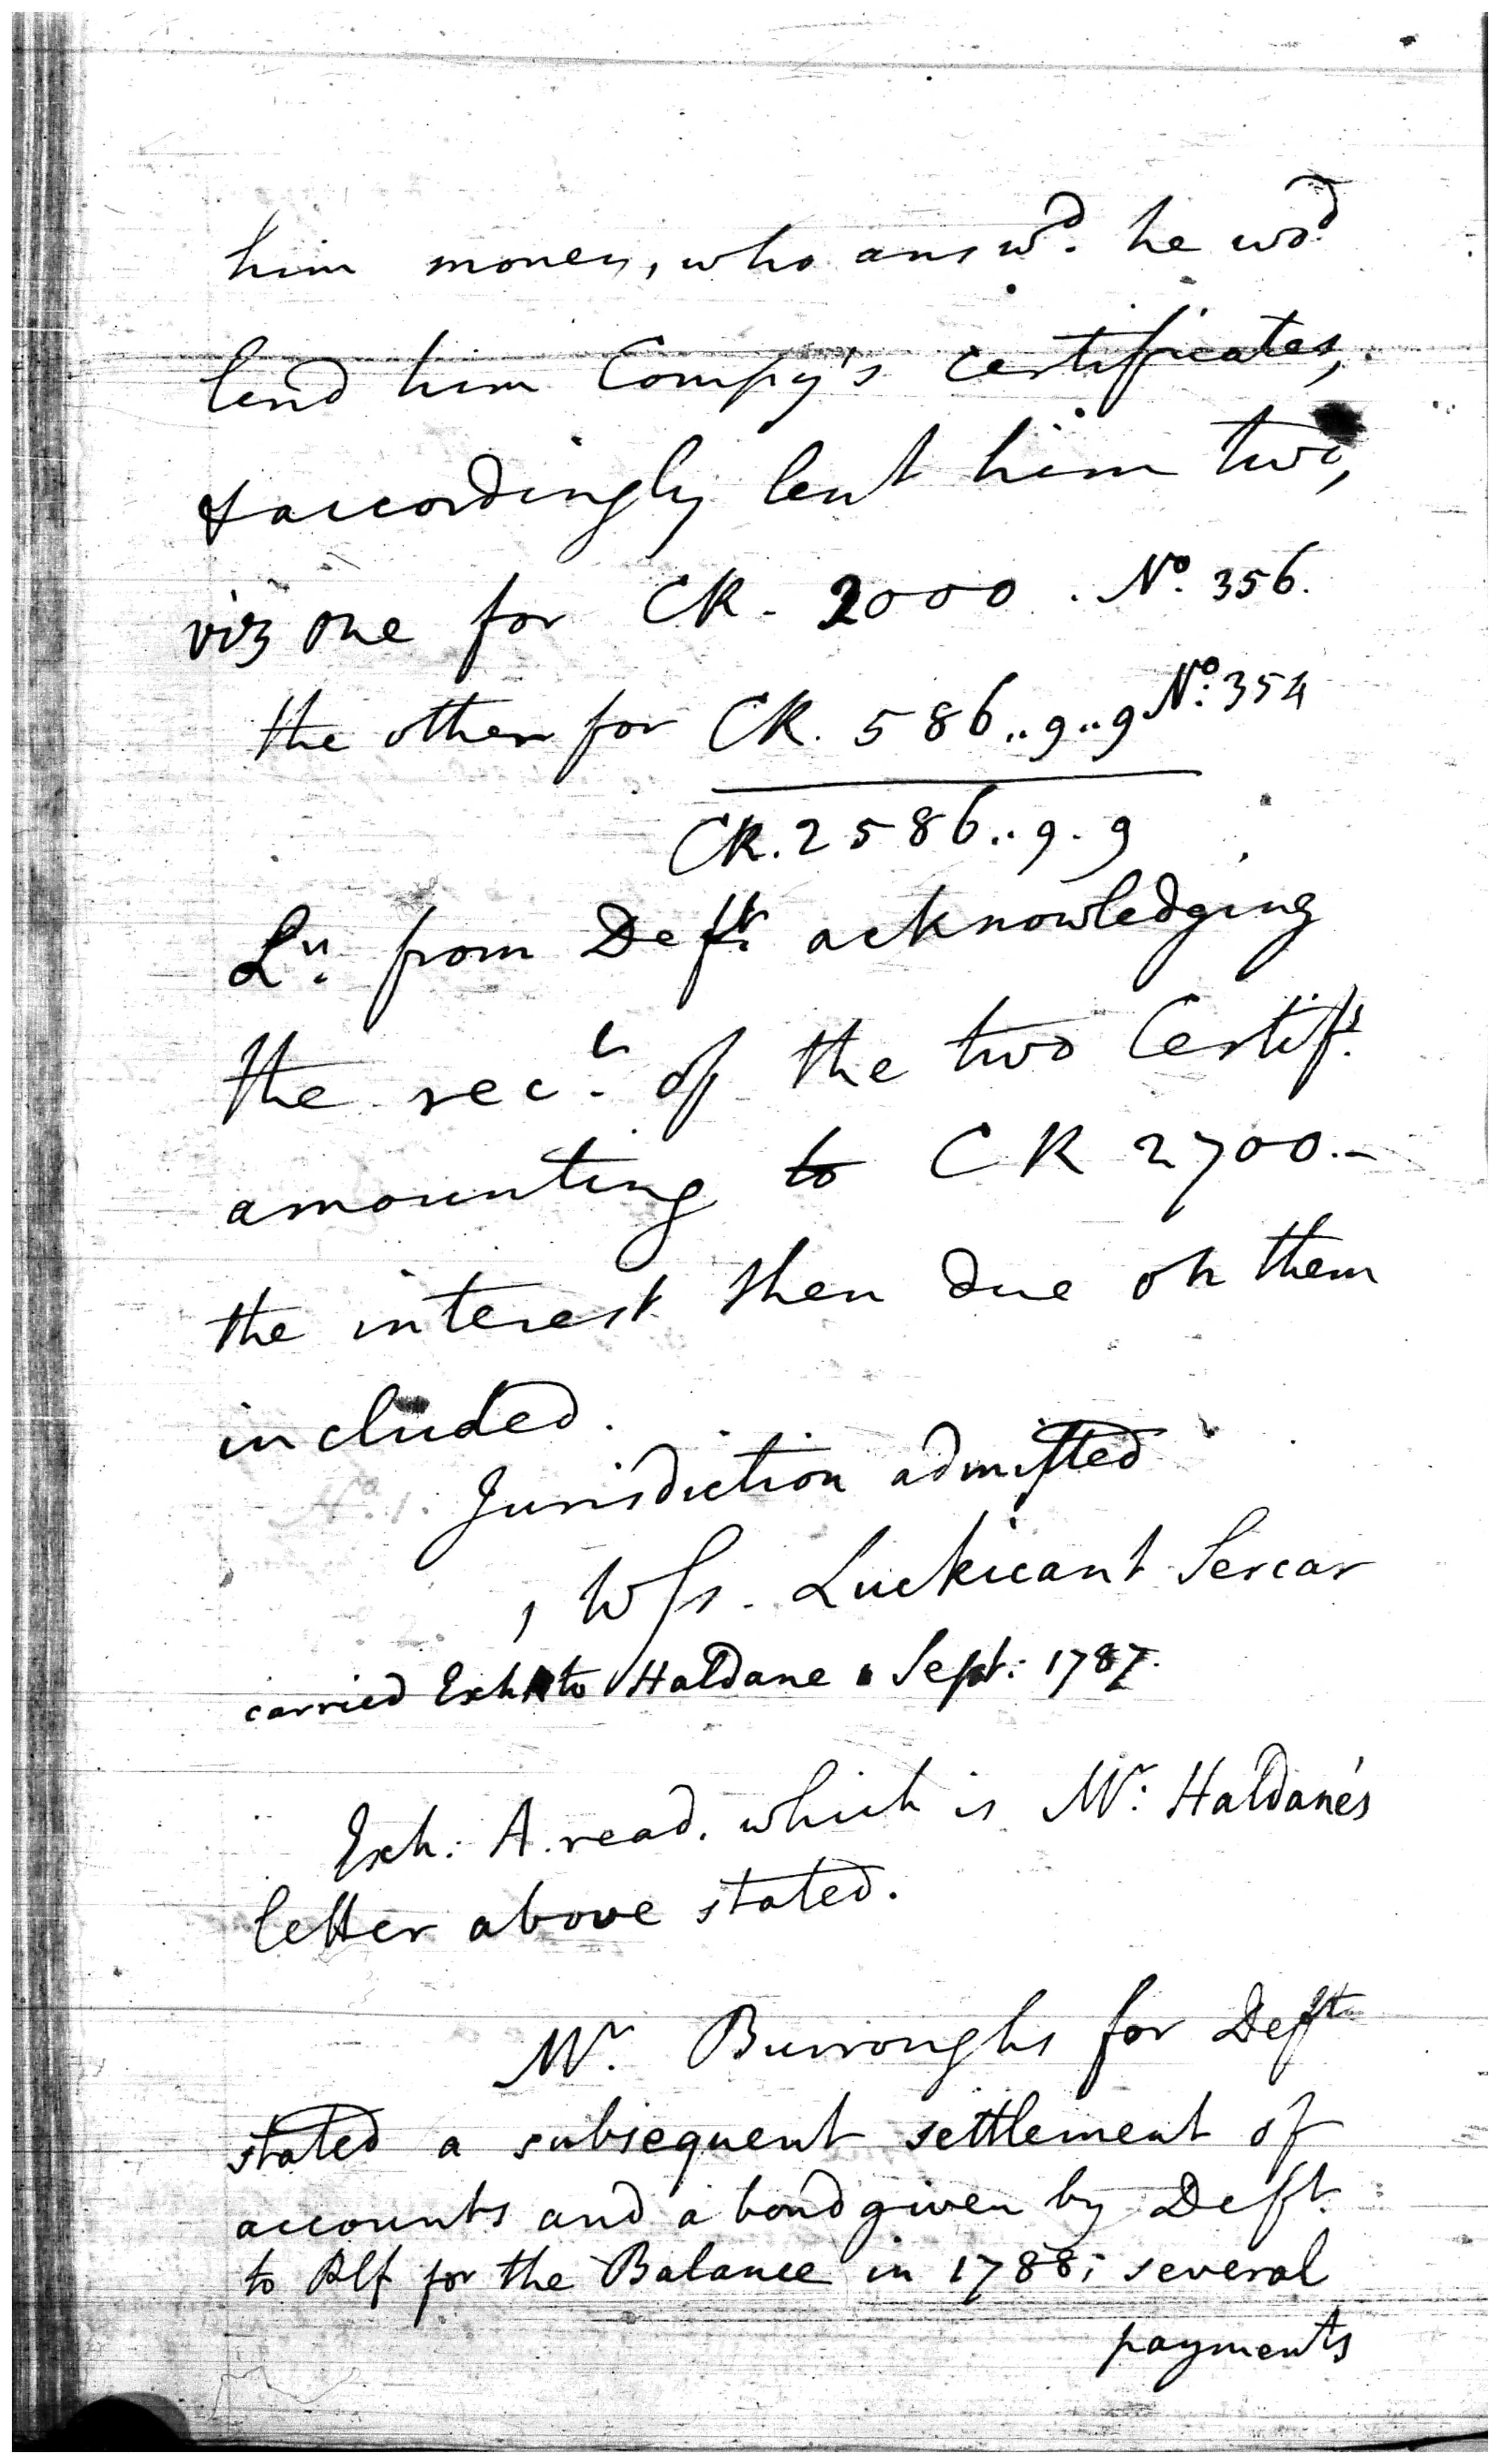 him money, who answ.d he wod
lend him Compy's certificates,
& accordingly lent him two,
viz one for CR. 2000. No. 356.
the other for CR. 586..9..9 No. 354
CR. 2586..9.9
Lr. from Deft. acknowledging
the rect. of the two Certifs.
amounting to CR 2700.-
the interest then due on them
included.
Jurisdiction admitted
1 Ws. Luckicant Sercar
carried Exh A to Haldane. Sept: 1787.
Exh: A. read. which is Mr. Haldane's
letter above stated.
Mr. Burroughs for Deft.
stated a subsequent settlement of
accounts and a bond given by Deft.
to Plf for the Balance in 1788; several
payments